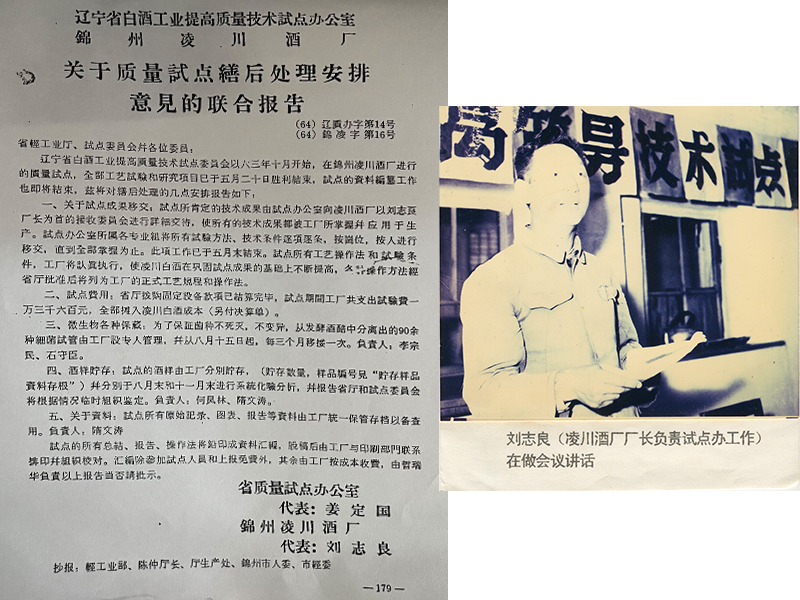 辽宁省白酒工业提高质量技术試点办公室
錦州凌川酒厂
关于质量試点繕后处理安排
意見的联合报告
(64) 辽质办字第14号
(64) 錦凌字第16号
省輕工业厅、試点委員会幷各位委員:
辽宁省白酒工业提高质量技术試点委員会以六三年十月开始,在錦州凌川酒厂进行
的质量試点,全部工艺試驗和研究項目已于五月二十日胜利結束,試点的資料編纂工作
也即将結束,茲将对繕后处理的几点安排报告如下:
一、关于試点成果移交:試点所肯定的技术成果由試点办公室向凌川酒厂以刘志良
厂长为首的接收委員会进行詳細交待,使所有的技术成果都被工厂所掌握幷应用于生
产。試点办公室所属各专业組将所有試驗方法、技术条件逐項逐条,按崗位,按人进行
移交,直到全部掌握为止。此項工作已于五月末結束。試点所有工艺操作法和試驗条
件,工厂将认眞执行,使凌川白酒在巩固試点成果的基础上不断提高,操作方法經
省厅批准后将列为工厂的正式工艺規程和操作法。
二、試点費用:省厅拨购固定設备款項已結算完毕,試点期間工厂共支出試驗費一
万三千六百元,全部摊入凌川白酒成本(另付决算单)。
三、微生物各种保藏:为了保証菌种不死灭,不变异,从发酵酒醅中分离出的90余
种細菌試管由工厂設专人管理,幷从八月十五日起,每三个月移接一次。負責人:李宗
民、石守臣。
四、酒样貯存:試点的酒样由工厂分別貯存,(貯存数量,样品編号見“貯存样品
資料存根”)幷分別于八月末和十一月末进行系統化驗分析,幷报告省厅和試点委員会
将根据情况临时組織鉴定。負責人:何凤林、隋文涛。
五、关于資料:試点所有原始記录、图表、报告等資料由工厂統一保管存档以备查
用。負責人:隋文涛
試点的所有总結、报告、操作法将鉛印成資料汇編,脫稿后由工厂与印刷部門联系
排印幷組織校对。汇編除参加試点人員和上报免費外,其余由工厂按成本收費,由曹瑞
华負責以上报告当否請批示。
省质量試点办公室
代表:姜定国
錦州凌川酒厂
代表:刘志良
抄报:輕工业部、陈仲厅长、厅生产处、錦州市人委、市經委
—179—
高质量技术試点
刘志良(凌川酒厂厂长负责试点办工作)
在做会议讲话